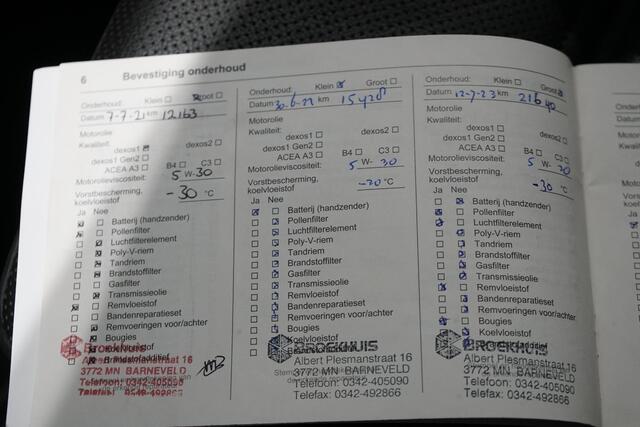 6 Bevestiging onderhoud
Onderhoud: Klein Groot
Datum 7-7-21 km 12163
Motorolie
Kwaliteit:
dexos1 dexos2
dexos1 Gen2
ACEA A3 B4 C3
Motorolieviscositeit: 5 W- 30
Vorstbescherming,
koelvloeistof -30 °C
Ja Nee
Batterij (handzender)
Pollenfilter
Luchtfilterelement
Poly-V-riem
Tandriem
Brandstoffilter
Gasfilter
Transmissieolie
Remvloeistof
Bandenreparatieset
Remvoeringen voor/achter
Bougies
Koelvloeistof
Brandstofadditief
BROEKHUIS
Albert Plesmanstraat 16
3772 MN BARNEVELD
Telefoon: 0342-405090
Telefax: 0342-492866
Onderhoud: Klein Groot
Datum km
Motorolie
Kwaliteit:
dexos1 dexos2
dexos1 Gen2
ACEA A3 B4 C3
Motorolieviscositeit: 5 W- 30
Vorstbescherming,
koelvloeistof °C
Ja Nee
Batterij (handzender)
Pollenfilter
Luchtfilterelement
Poly-V-riem
Tandriem
Brandstoffilter
Gasfilter
Transmissieolie
Remvloeistof
Bandenreparatieset
Remvoeringen voor/achter
Bougies
Koelvloeistof
BROEKHUIS
Albert Plesmanstraat 16
3772 MN BARNEVELD
Telefoon: 0342-405090
Telefax: 0342-492866
Onderhoud: Klein Groot
Datum 12-7-23 km
Motorolie
Kwaliteit:
dexos1 dexos2
dexos1 Gen2
ACEA A3 B4 C3
Motorolieviscositeit: 5 W- 30
Vorstbescherming,
koelvloeistof -30 °C
Ja Nee
Batterij (handzender)
Pollenfilter
Luchtfilterelement
Poly-V-riem
Tandriem
Brandstoffilter
Gasfilter
Transmissieolie
Remvloeistof
Bandenreparatieset
Remvoeringen voor/achter
Bougies
Koelvloeistof
BROEKHUIS
Albert Plesmanstraat 16
3772 MN BARNEVELD
Telefoon: 0342-405090
Telefax: 0342-492866